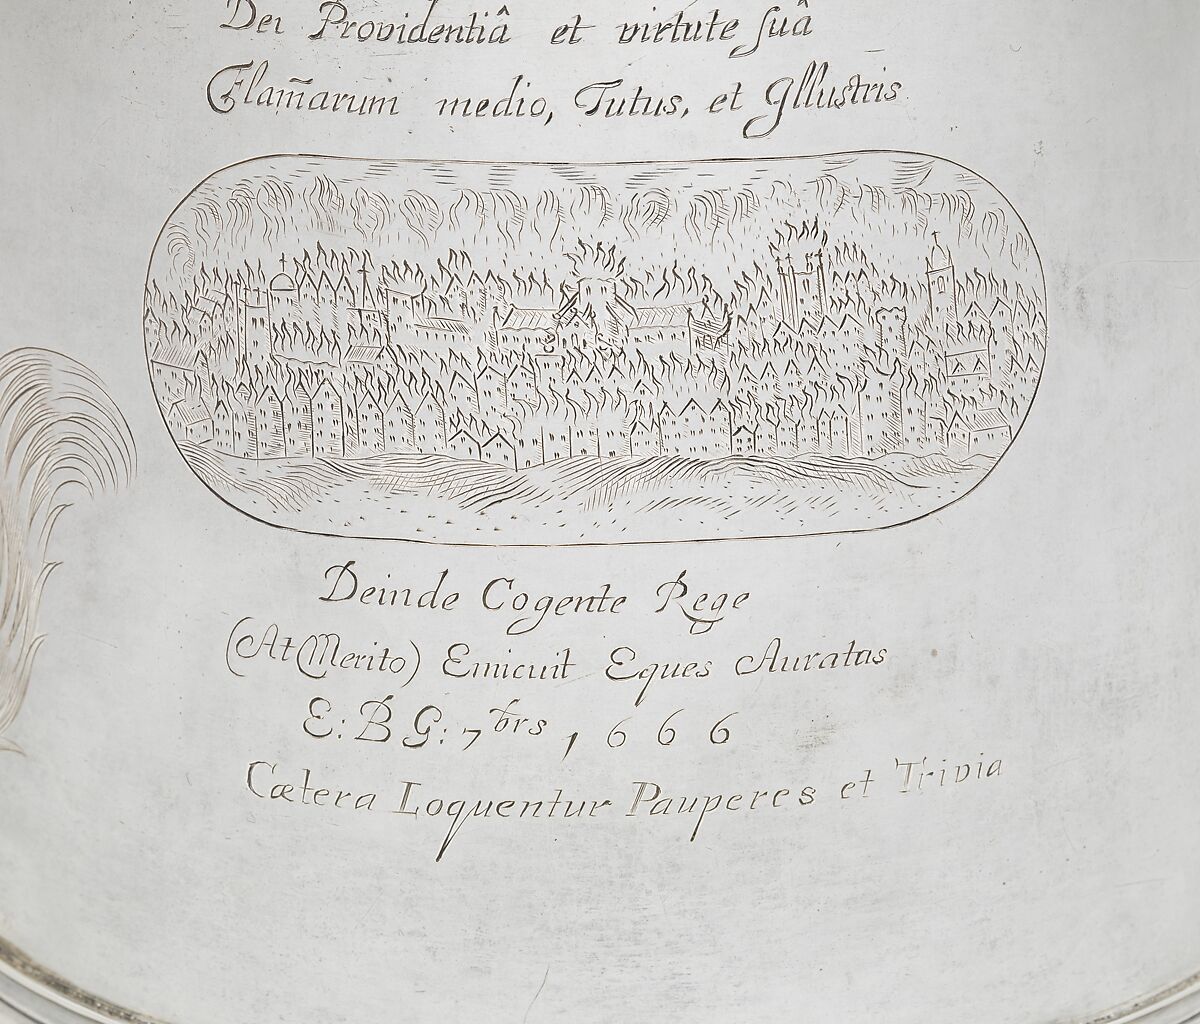 Dei Providentiâ et virtute ſuâ
Flam̄arum medio, Tutus, et Illustris
Deinde Cogente Rege
(At Merito) Emicuit Eques Auratus
E: B G: 7brs 1666
Cætera Loquentur Pauperes et Trivia